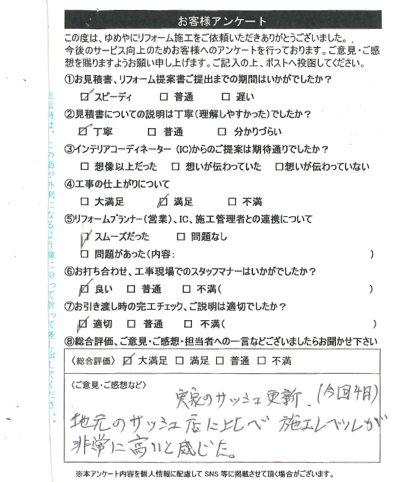 お客様アンケート
この度は、ゆめやにリフォーム施工をご依頼いただきありがとうございました。
今後のサービス向上のためお客様へのアンケートを行っております。ご意見・ご感
想を賜りますようお願い申し上げます。ご記入の上、ポストへ投函してください。
①お見積書、リフォーム提案書ご提出までの期間はいかがでしたか?
☑ スピーディ □ 普通 □ 遅い
②見積書についての説明は丁寧(理解しやすかった)でしたか?
☑ 丁寧 □ 普通 □ 分かりづらい
③インテリアコーディネーター (IC)からのご提案は期待通りでしたか?
□ 想像以上だった □ 想いが伝わっていた □想いが伝わっていない
④工事の仕上がりについて
□ 大満足 ☑ 満足 □ 不満
⑤リフォームプランナー(営業)、IC、施工管理者との連携について
☑ スムーズだった □ 問題なし
□ 問題があった(内容: )
⑥お打ち合わせ、工事現場でのスタッフマナーはいかがでしたか?
☑ 良い □ 普通 □ 不満( )
⑦お引き渡し時の完工チェック、ご説明は適切でしたか?
☑ 適切 □ 普通 □ 不満( )
⑧総合評価、ご意見・ご感想・担当者への一言などございましたらお聞かせ下さい
〈総合評価〉 ☑ 大満足 □ 満足 □ 普通 □ 不満
〈ご意見・ご感想など〉
実家のサッシュ更新. (今回4月)
地元のサッシュ店に比べ 施工レベルが
非常に高いと感じた。
※本アンケート内容を個人情報に配慮して SNS 等に掲載させて頂く場合がございます。